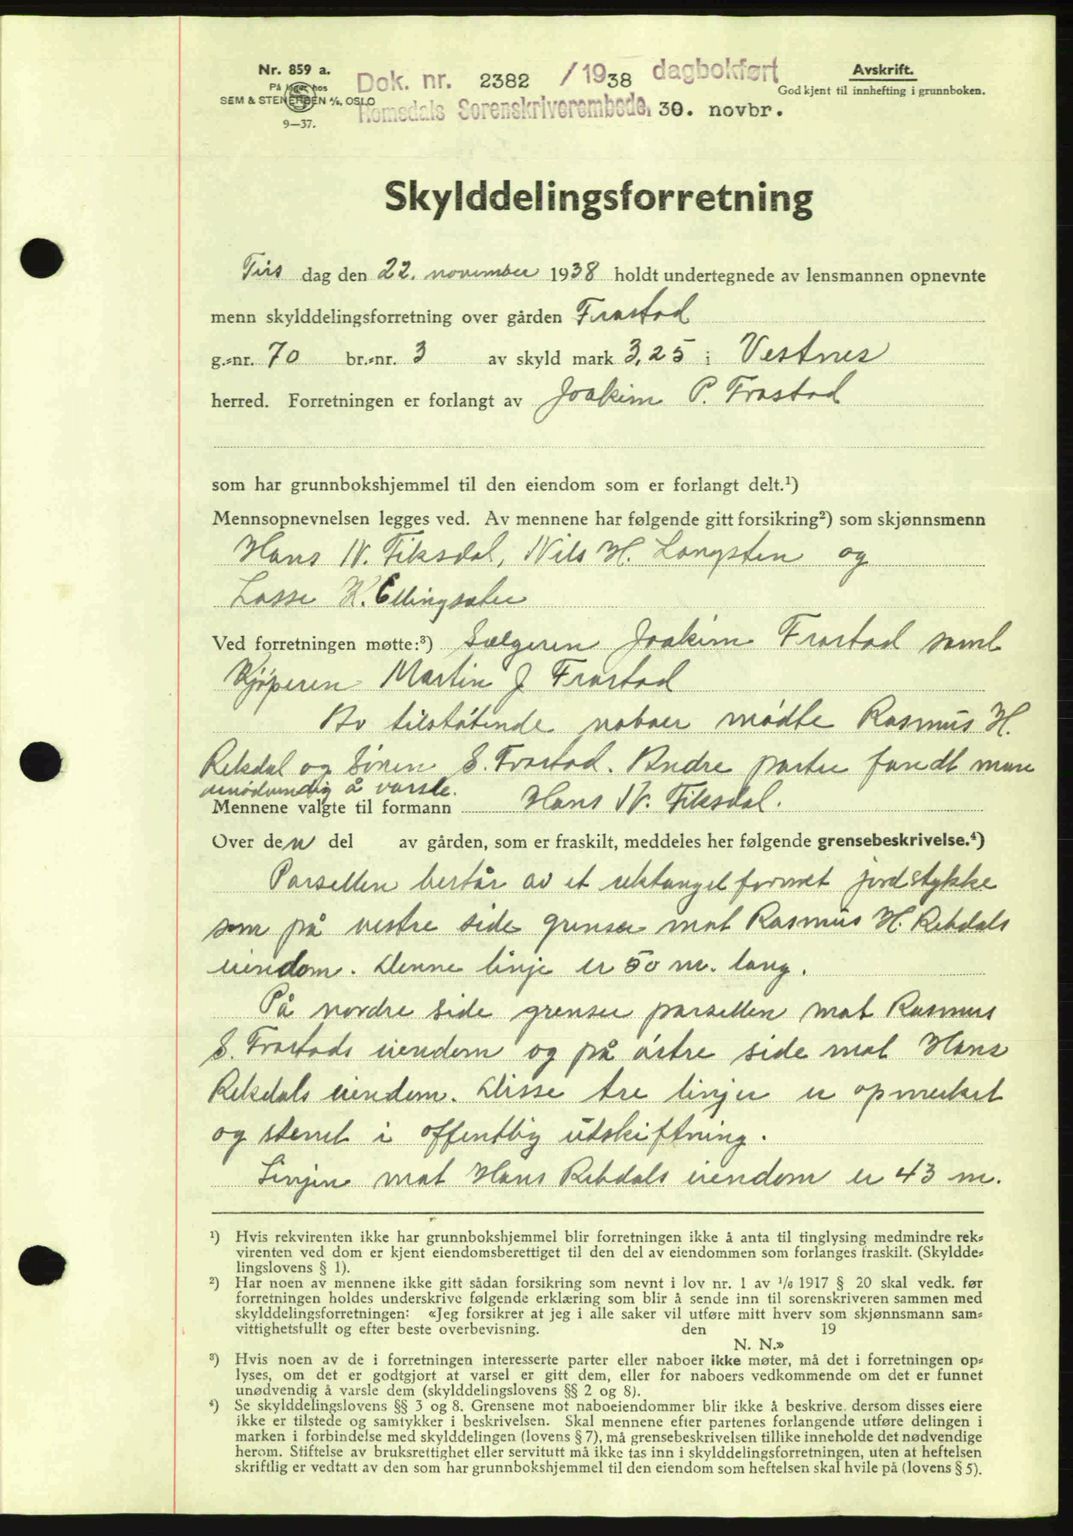 Nr. 859 a.
På lager hos
SEM & STENERSEN A/S, OSLO
9—37.
Dok. nr. 2382 /1938 dagbokført
Romsdals Sorenskriverembede, 30. novbr.
Avskrift.
Godkjent til innhefting i grunnboken.
Skylddelingsforretning
Tirs dag den 22. november 1938 holdt undertegnede av lensmannen opnevnte
menn skylddelingsforretning over gården Frostad
g.-nr. 70 br.-nr. 3 av skyld mark 3,25 i Vestnes
herred. Forretningen er forlangt av Joakim P. Frostad
som har grunnbokshjemmel til den eiendom som er forlangt delt.¹)
Mennsopnevnelsen legges ved. Av mennene har følgende gitt forsikring²) som skjønnsmenn
Hans N. Fiksdal, Nils H. Longsten og
Lasse K. Ellingsæter
Ved forretningen møtte:³) Sælgeren Joakim Frostad samt
Kjøperen Martin J Frostad
Av tilstøtende naboer mødte Rasmus H.
Rekdal og Sören S. Frostad. Andre parter fandt man
unødvendig å varsle.
Mennene valgte til formann Hans N. Fiksdal.
Over den del av gården, som er fraskilt, meddeles her følgende grensebeskrivelse.⁴)
Parsellen består av et rektangelformet jordstykke
som på vestre side grenser mot Rasmus H. Rekdals
eiendom. Denne linje er 50 m. lang.
På nordre side grenser parsellen mot Rasmus
S. Frostads eiendom og på östre side mot Hans
Rekdals eiendom. Disse tre linjer er opmerket
og stenet i offentlig utskiftning.
Linjen mot Hans Rekdals eiendom er 43 m.
¹) Hvis rekvirenten ikke har grunnbokshjemmel blir forretningen ikke å anta til tinglysing medmindre rek-
virenten ved dom er kjent eiendomsberettiget til den del av eiendommen som forlanges fraskilt. (Skyldde-
lingslovens § 1).
²) Har noen av mennene ikke gitt sådan forsikring som nevnt i lov nr. 1 av 1/6 1917 § 20 skal vedk. før
forretningen holdes underskrive følgende erklæring som blir å sende inn til sorenskriveren sammen med
skylddelingsforretningen: «Jeg forsikrer at jeg i alle saker vil utføre mitt hverv som skjønnsmann sam-
vittighetsfullt og efter beste overbevisning. den 19
N. N.»
³) Hvis noen av de i forretningen interesserte parter eller naboer ikke møter, må det i forretningen op-
lyses, om det er godtgjort at varsel er gitt dem, eller for naboers vedkommende om det er funnet
unødvendig å varsle dem (skylddelingslovens §§ 2 og 8).
⁴) Se skylddelingslovens §§ 3 og 8. Grensene mot naboeiendommer blir ikke å beskrive, dersom disses eiere
ikke er tilstede og samtykker i beskrivelsen. Skal mennene efter partenes forlangende utføre delingen i
marken i forbindelse med skylddelingen (lovens § 7), må grensebeskrivelsen tillike inneholde det nødvendige
herom. Stiftelse av bruksrettighet eller servitutt må ikke tas inn i skylddelingsforretningen, uten at heftelsen
skriftlig er vedtatt av den som har grunnbokshjemmel til den eiendom som heftelsen skal hvile på (lovens § 5).